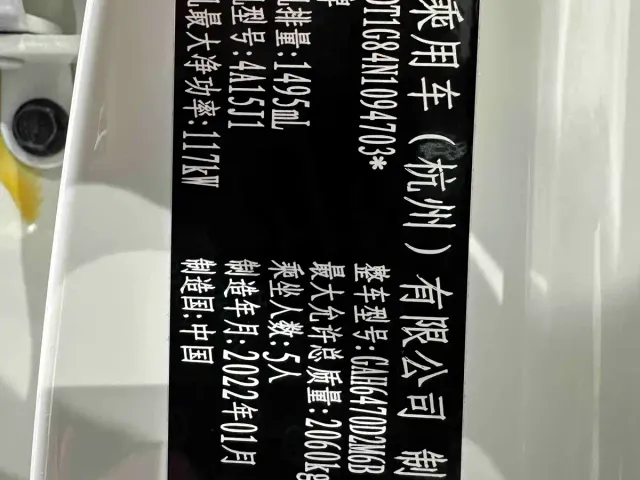 乘用车（杭州）有限公司 制
牌
DT1G84N1094703*
整车型号:GAH6470D2M6B
最大允许总质量:2060kg
排量:1495mL
乘坐人数:5人
型号:4A15J1
制造年月:2022年01月
最大净功率:117kW
制造国:中国